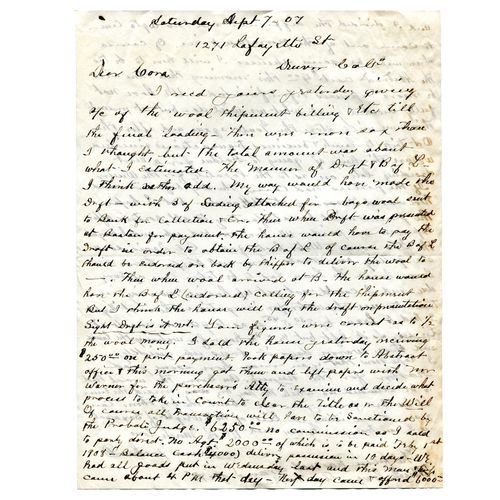 Saturday Sept 7-07
1271 Lafayette St
Denver Colo
Dear Cora
I recd yours yesterday giving
a/c of the wool shipment billing & Etc till
the final loading - There were more sax than
I thought, but the total amount was about
what I estimated. The Manner of Drft & B of L
I think rather odd. My way would have made the
Drft - with B of Lading attached for bags wool sent
to Bank for Collection & Then when Draft was presented
at Boston for payment, the house would have to pay the
Draft in order to obtain the B of L of course the B of L
should be endorsed on back by shipper to deliver the wool to
Then when wool arrived at B - the house would
have the B of L (endorsed) calling for the shipment
But I think the house will pay the draft on presentation
Sight Draft is it not. Your figures were correct as to 1/2
the wool money. I sold the house yesterday receiving
$250.00 on part payment. Took papers down to Abstract
office & this morning got them and left papers with Mr
Warner for the purchasers Atty to examine and decide what
process to take in Court to clear the Title as in the Will
of course all transactions will have to be sanctioned by
the Probate Judge. $6250.00 no commission as I sold
to party direct. $2000.00 of which is to be paid Feby 1st
1908 - Balance Cash ($4000) delivery possession in 10 days - We
had all goods put in Wednesday last and this man
came about 4 PM that day - Next day came & offered 6000